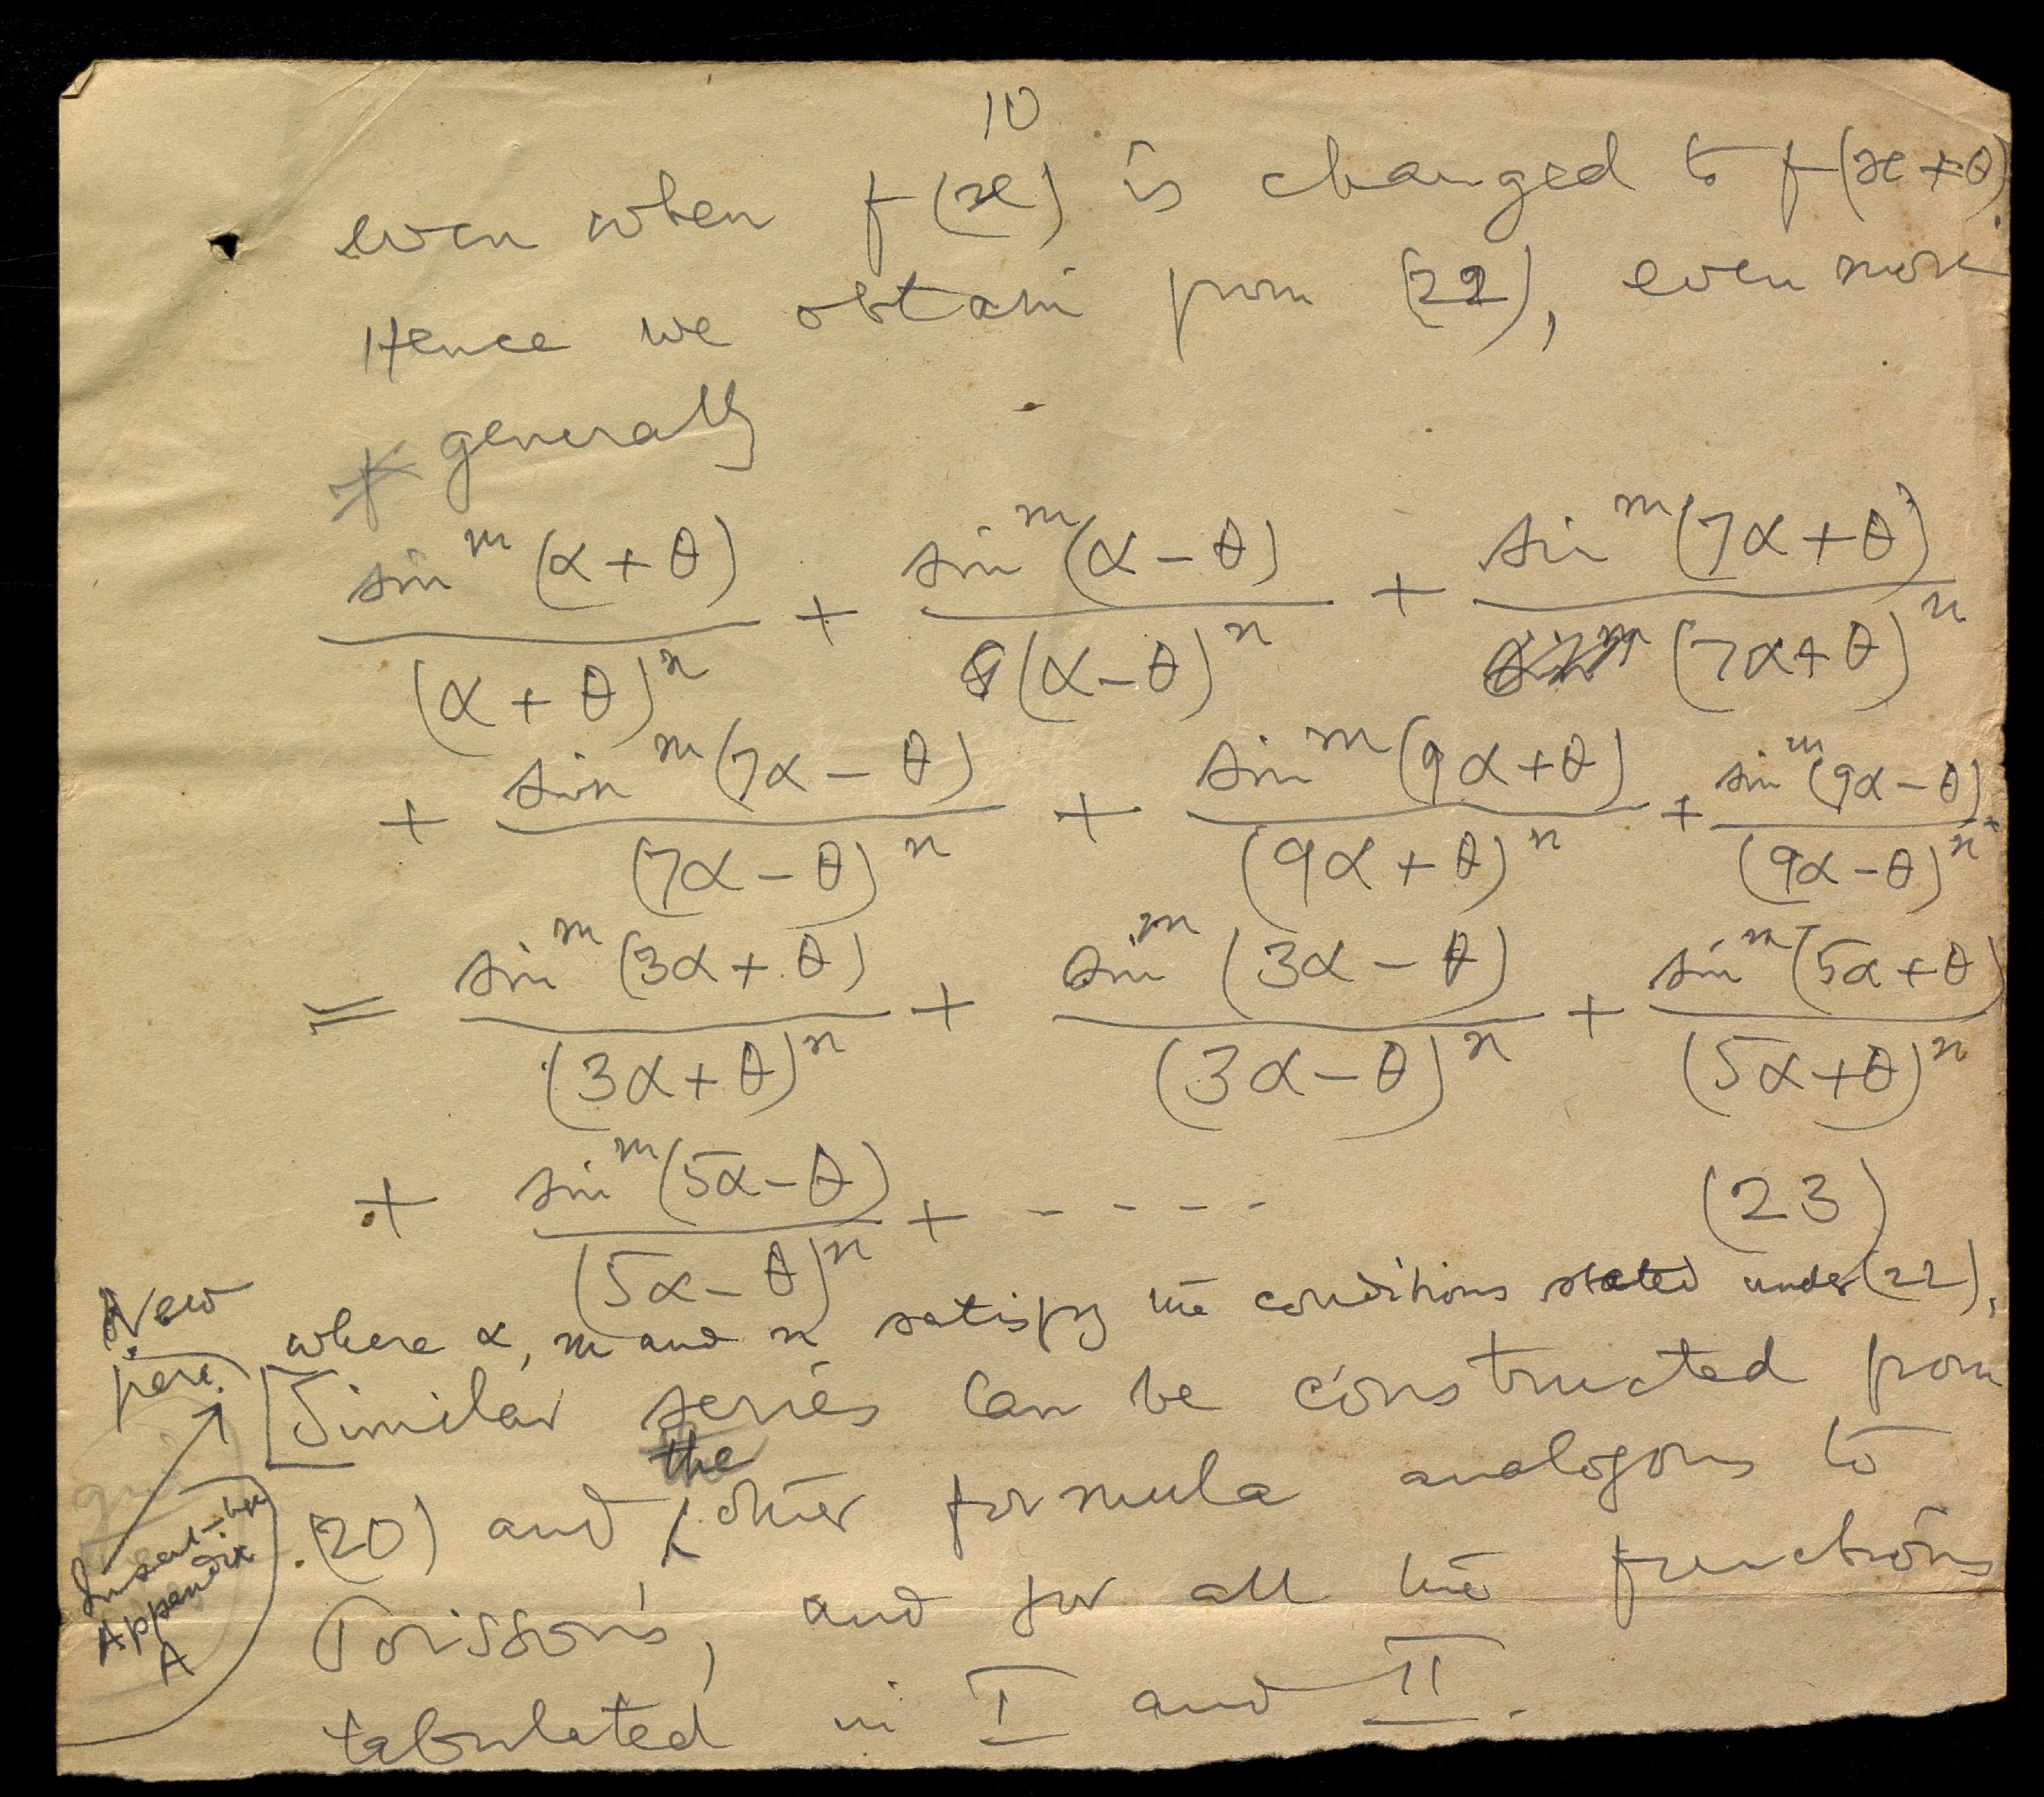 10
even when f(x) is changed to f(x+θ).
Hence we obtain from (22), even more
generally
sin^m (α + θ) / (α + θ)^n + sin^m (α − θ) / (α − θ)^n + sin^m (7α + θ) / (7α + θ)^n
+ sin^m (7α − θ) / (7α − θ)^n + sin^m (9α + θ) / (9α + θ)^n + sin^m (9α − θ) / (9α − θ)^n
= sin^m (3α + θ) / (3α + θ)^n + sin^m (3α − θ) / (3α − θ)^n + sin^m (5α + θ) / (5α + θ)^n
+ sin^m (5α − θ) / (5α − θ)^n + - - - - - (23)
where α, m and n satisfy the conditions stated under (22).
New
para.
[Similar series can be constructed from
(20) and the other formula analogous to
Poisson's, and for all the functions
tabulated in I and II.
Appendix
A